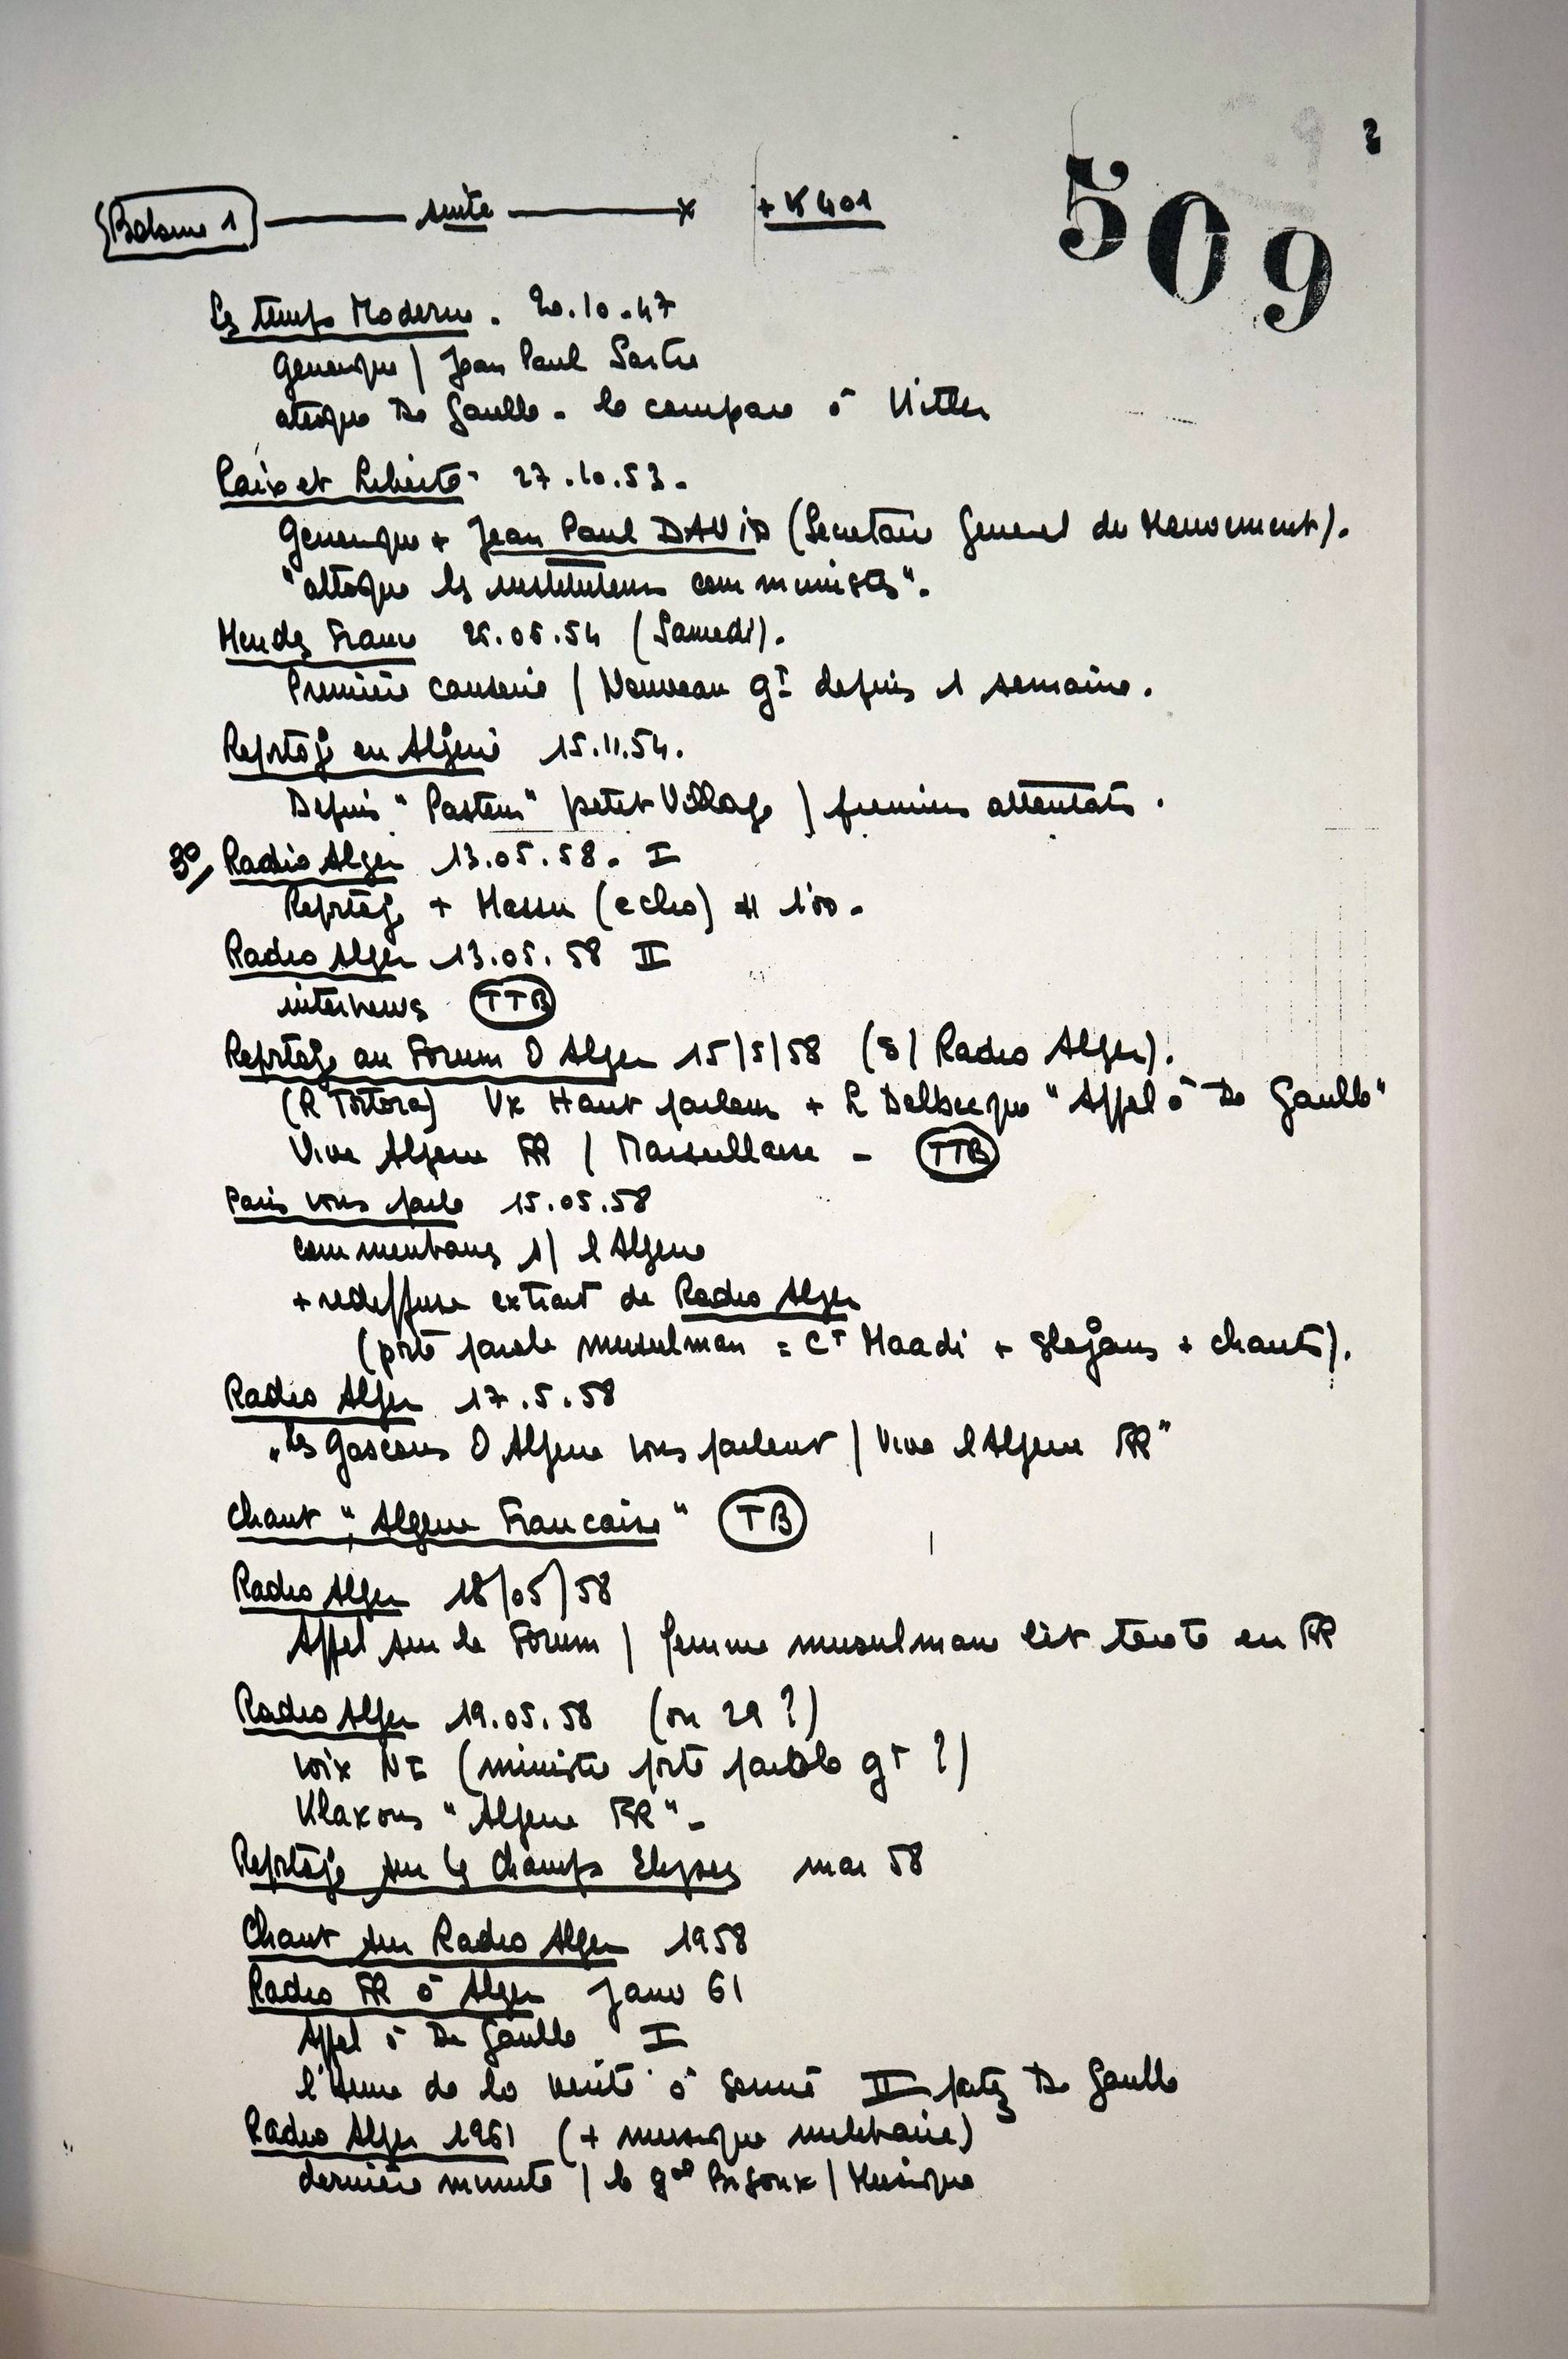 2
509
Bobine 1 suite x + K401
Les temps Moderne. 20.10.47
Generique / Jean Paul Sartre
ataque De Gaulle - le compare à Hitler
Paix et Liberté - 27.10.53.
Generique + Jean Paul DAViD (Secretaire General du Mouvement).
"attaque les instituteurs communistes".
Mendes France 26.06.54 (Samedi).
Première causerie / Nouveau gt depuis 1 semaine.
Reportage en Algérie 15.11.54.
Depuis "Pasteur" petit Village / premiers attentats.
30/ Radio Alger 13.05.58. I
Reportage + Massu (echo) # 1'00.
Radio Alger 13.05.58 II
interviews TTB
Reportage au Forum D Alger 15/5/58 (S/ Radio Alger).
(R Tortora) Vx Haut parleurs + L Delbecque "Appel à De Gaulle"
Vive Algerie FR / Marseillaise - TTB
Paris vous parle 15.05.58
commentaires s/ l Algerie
+ rediffuse extrait de Radio Alger
(porte parole musulman = Ct Maadi + Slogans + chants).
Radio Alger 17.5.58
"les Gascons D Algerie vous parlent / Vive l Algerie FR"
Chant "Algerie Francaise" TB
Radio Alger 18/05/58
Appel sur le Forum / femme musulmane lit texte en FR
Radio Alger 19.05.58 (ou 29 ?)
voix NI (ministre porte parole gt ?)
Klaxons "Algerie FR" -
Reportage sur les Champs Elysees mai 58
Chant sur Radio Alger 1958
Radio FR à Alger Janv 61
Appel à De Gaulle I
l'Heure de la verité à sonné II partez De Gaulle
Radio Alger 1961 (+ musique militaire)
dernière minute / le gal Bigoux / Musique